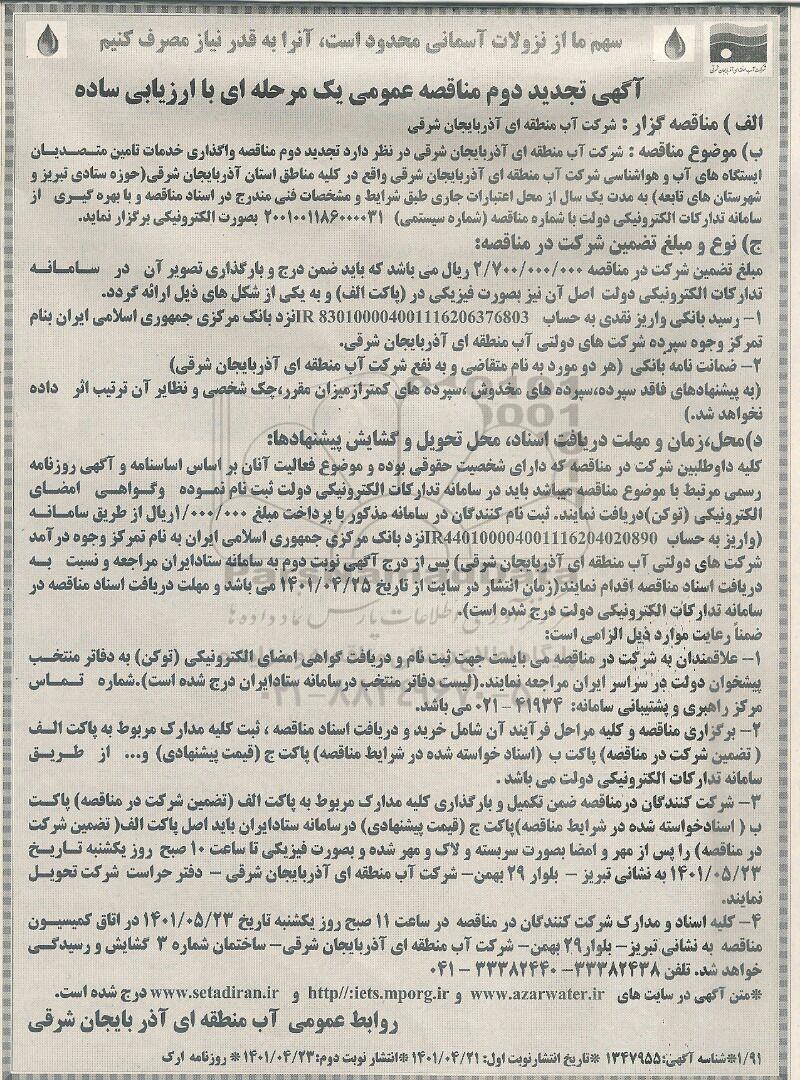 سهم ما از نزولات آسمانی محدود است، آنرا به قدر نیاز مصرف کنیم
شرکت آب منطقه ای آذربایجان شرقی
آگهی تجدید دوم مناقصه عمومی یک مرحله ای با ارزیابی ساده
الف ) مناقصه گزار : شرکت آب منطقه ای آذربایجان شرقی
ب) موضوع مناقصه : شرکت آب منطقه ای آذربایجان شرقی در نظر دارد تجدید دوم مناقصه واگذاری خدمات تامین متصدیان
ایستگاه های آب و هواشناسی شرکت آب منطقه ای آذربایجان شرقی واقع در کلیه مناطق استان آذربایجان شرقی(حوزه ستادی تبریز و
شهرستان های تابعه) به مدت یک سال از محل اعتبارات جاری طبق شرایط و مشخصات فنی مندرج در اسناد مناقصه و با بهره گیری از
سامانه تدارکات الکترونیکی دولت با شماره مناقصه (شماره سیستمی) ۲۰۰۱۰۰۱۱۸۶۰۰۰۰۳۱ بصورت الکترونیکی برگزار نماید.
ج) نوع و مبلغ تضمین شرکت در مناقصه:
مبلغ تضمین شرکت در مناقصه ۲/۷۰۰/۰۰۰/۰۰۰ ریال می باشد که باید ضمن درج و بارگذاری تصویر آن در سامانه
تدارکات الکترونیکی دولت اصل آن نیز بصورت فیزیکی در (پاکت الف) و به یکی از شکل های ذیل ارائه گردد.
۱- رسید بانکی واریز نقدی به حساب IR 830100004001116206376803نزد بانک مرکزی جمهوری اسلامی ایران بنام
تمرکز وجوه سپرده شرکت های دولتی آب منطقه ای آذربایجان شرقی.
۲- ضمانت نامه بانکی (هر دو مورد به نام متقاضی و به نفع شرکت آب منطقه ای آذربایجان شرقی)
(به پیشنهادهای فاقد سپرده،سپرده های مخدوش ،سپرده های کمترازمیزان مقرر،چک شخصی و نظایر آن ترتیب اثر داده
نخواهد شد.)
د)محل،زمان و مهلت دریافت اسناد، محل تحویل و گشایش پیشنهادها:
کلیه داوطلبین شرکت در مناقصه که دارای شخصیت حقوقی بوده و موضوع فعالیت آنان بر اساس اساسنامه و آگهی روزنامه
رسمی مرتبط با موضوع مناقصه میباشد باید در سامانه تدارکات الکترونیکی دولت ثبت نام نموده وگواهی امضای
الکترونیکی (توکن)دریافت نمایند. ثبت نام کنندگان در سامانه مذکور با پرداخت مبلغ ۱/۰۰۰/۰۰۰ریال از طریق سامانه
(واریز به حساب IR440100004001116204020890نزد بانک مرکزی جمهوری اسلامی ایران به نام تمرکز وجوه درآمد
شرکت های دولتی آب منطقه ای آذربایجان شرقی) پس از درج آگهی نوبت دوم به سامانه ستادایران مراجعه و نسبت به
دریافت اسناد مناقصه اقدام نمایند(زمان انتشار در سایت از تاریخ ۱۴۰۱/۰۴/۲۵ می باشد و مهلت دریافت اسناد مناقصه در
سامانه تدارکات الکترونیکی دولت درج شده است).
ضمناً رعایت موارد ذیل الزامی است:
۱- علاقمندان به شرکت در مناقصه می بایست جهت ثبت نام و دریافت گواهی امضای الکترونیکی (توکن) به دفاتر منتخب
پیشخوان دولت در سراسر ایران مراجعه نمایند.(لیست دفاتر منتخب درسامانه ستادایران درج شده است).شماره تماس
مرکز راهبری و پشتیبانی سامانه: ۴۱۹۳۴ - ۰۲۱ می باشد.
۲- برگزاری مناقصه و کلیه مراحل فرآیند آن شامل خرید و دریافت اسناد مناقصه ، ثبت کلیه مدارک مربوط به پاکت الف
( تضمین شرکت در مناقصه) پاکت ب (اسناد خواسته شده در شرایط مناقصه) پاکت ج (قیمت پیشنهادی) و... از طریق
سامانه تدارکات الکترونیکی دولت می باشد .
۳- شرکت کنندگان درمناقصه ضمن تکمیل و بارگذاری کلیه مدارک مربوط به پاکت الف (تضمین شرکت در مناقصه) پاکت
ب ( اسنادخواسته شده در شرایط مناقصه)پاکت ج (قیمت پیشنهادی) درسامانه ستادایران باید اصل پاکت الف( تضمین شرکت
در مناقصه) را پس از مهر و امضا بصورت سربسته و لاک و مهر شده و بصورت فیزیکی تا ساعت ۱۰ صبح روز یکشنبه تاریخ
۱۴۰۱/۰۵/۲۳ به نشانی تبریز - بلوار ۲۹ بهمن- شرکت آب منطقه ای آذربایجان شرقی - دفتر حراست شرکت تحویل
نمایند.
۴- کلیه اسناد و مدارک شرکت کنندگان در مناقصه در ساعت ۱۱ صبح روز یکشنبه تاریخ ۱۴۰۱/۰۵/۲۳ در اتاق کمیسیون
مناقصه به نشانی تبریز- بلوار۲۹ بهمن- شرکت آب منطقه ای آذربایجان شرقی- ساختمان شماره ۳ گشایش و رسیدگی
خواهد شد. تلفن ۳۳۳۸۲۴۳۸- ۳۳۳۸۲۴۴۰ - ۰۴۱
*متن آگهی در سایت های www.azarwater.ir و http//:iets.mporg.ir و www.setadiran.ir درج شده است.
روابط عمومی آب منطقه ای آذر بایجان شرقی
۱/۹۱*شناسه آگهی:۱۳۴۷۹۵۵ *تاریخ انتشارنوبت اول: ۱۴۰۱/۰۴/۲۱ *انتشار نوبت دوم:۱۴۰۱/۰۴/۲۳ * روزنامه ارک